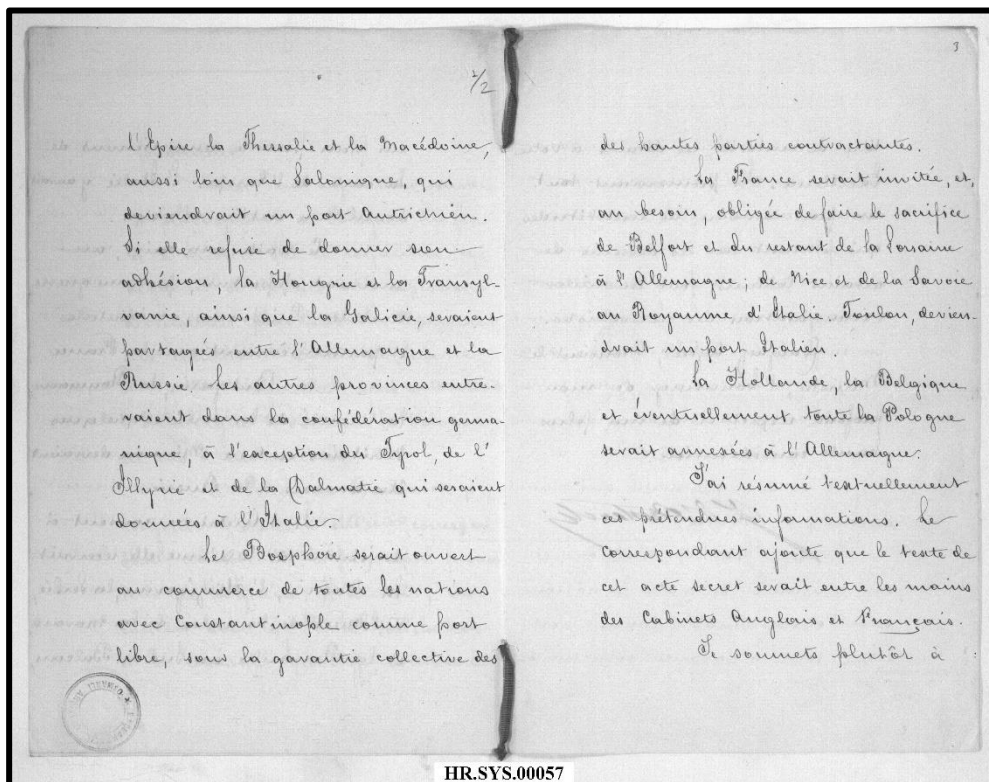 1/2
l'Epire la Thessalie et la Macédoine,
aussi loin que Salonique, qui
deviendrait un port Autrichien.
Si elle refuse de donner son
adhésion, la Hongrie et la Transyl-
vanie, ainsi que la Galicie, seraient
partagées entre l'Allemagne et la
Russie. Les autres provinces entre-
raient dans la confédération germa-
nique, à l'exception du Tyrol, de l'
Illyrie et de la Dalmatie qui seraient
données à l'Italie.
Le Bosphore serait ouvert
au commerce de toutes les nations
avec Constantinople comme port
libre, sous la garantie collective des
3
des hautes parties contractantes.
La France serait invitée, et,
au besoin, obligée de faire le sacrifice
de Belfort et du restant de la Lorraine
à l'Allemagne; de Nice et de la Savoie
au Royaume d'Italie. Toulon, devien-
drait un port Italien.
La Hollande, la Belgique
et éventuellement toute la Pologne
serait annexées à l'Allemagne.
J'ai résumé textuellement
ces prétendues informations. Le
correspondant ajoute que le texte de
cet acte secret serait entre les mains
des Cabinets Anglais et Français.
Je soumets plutôt à
HR.SYS.00057